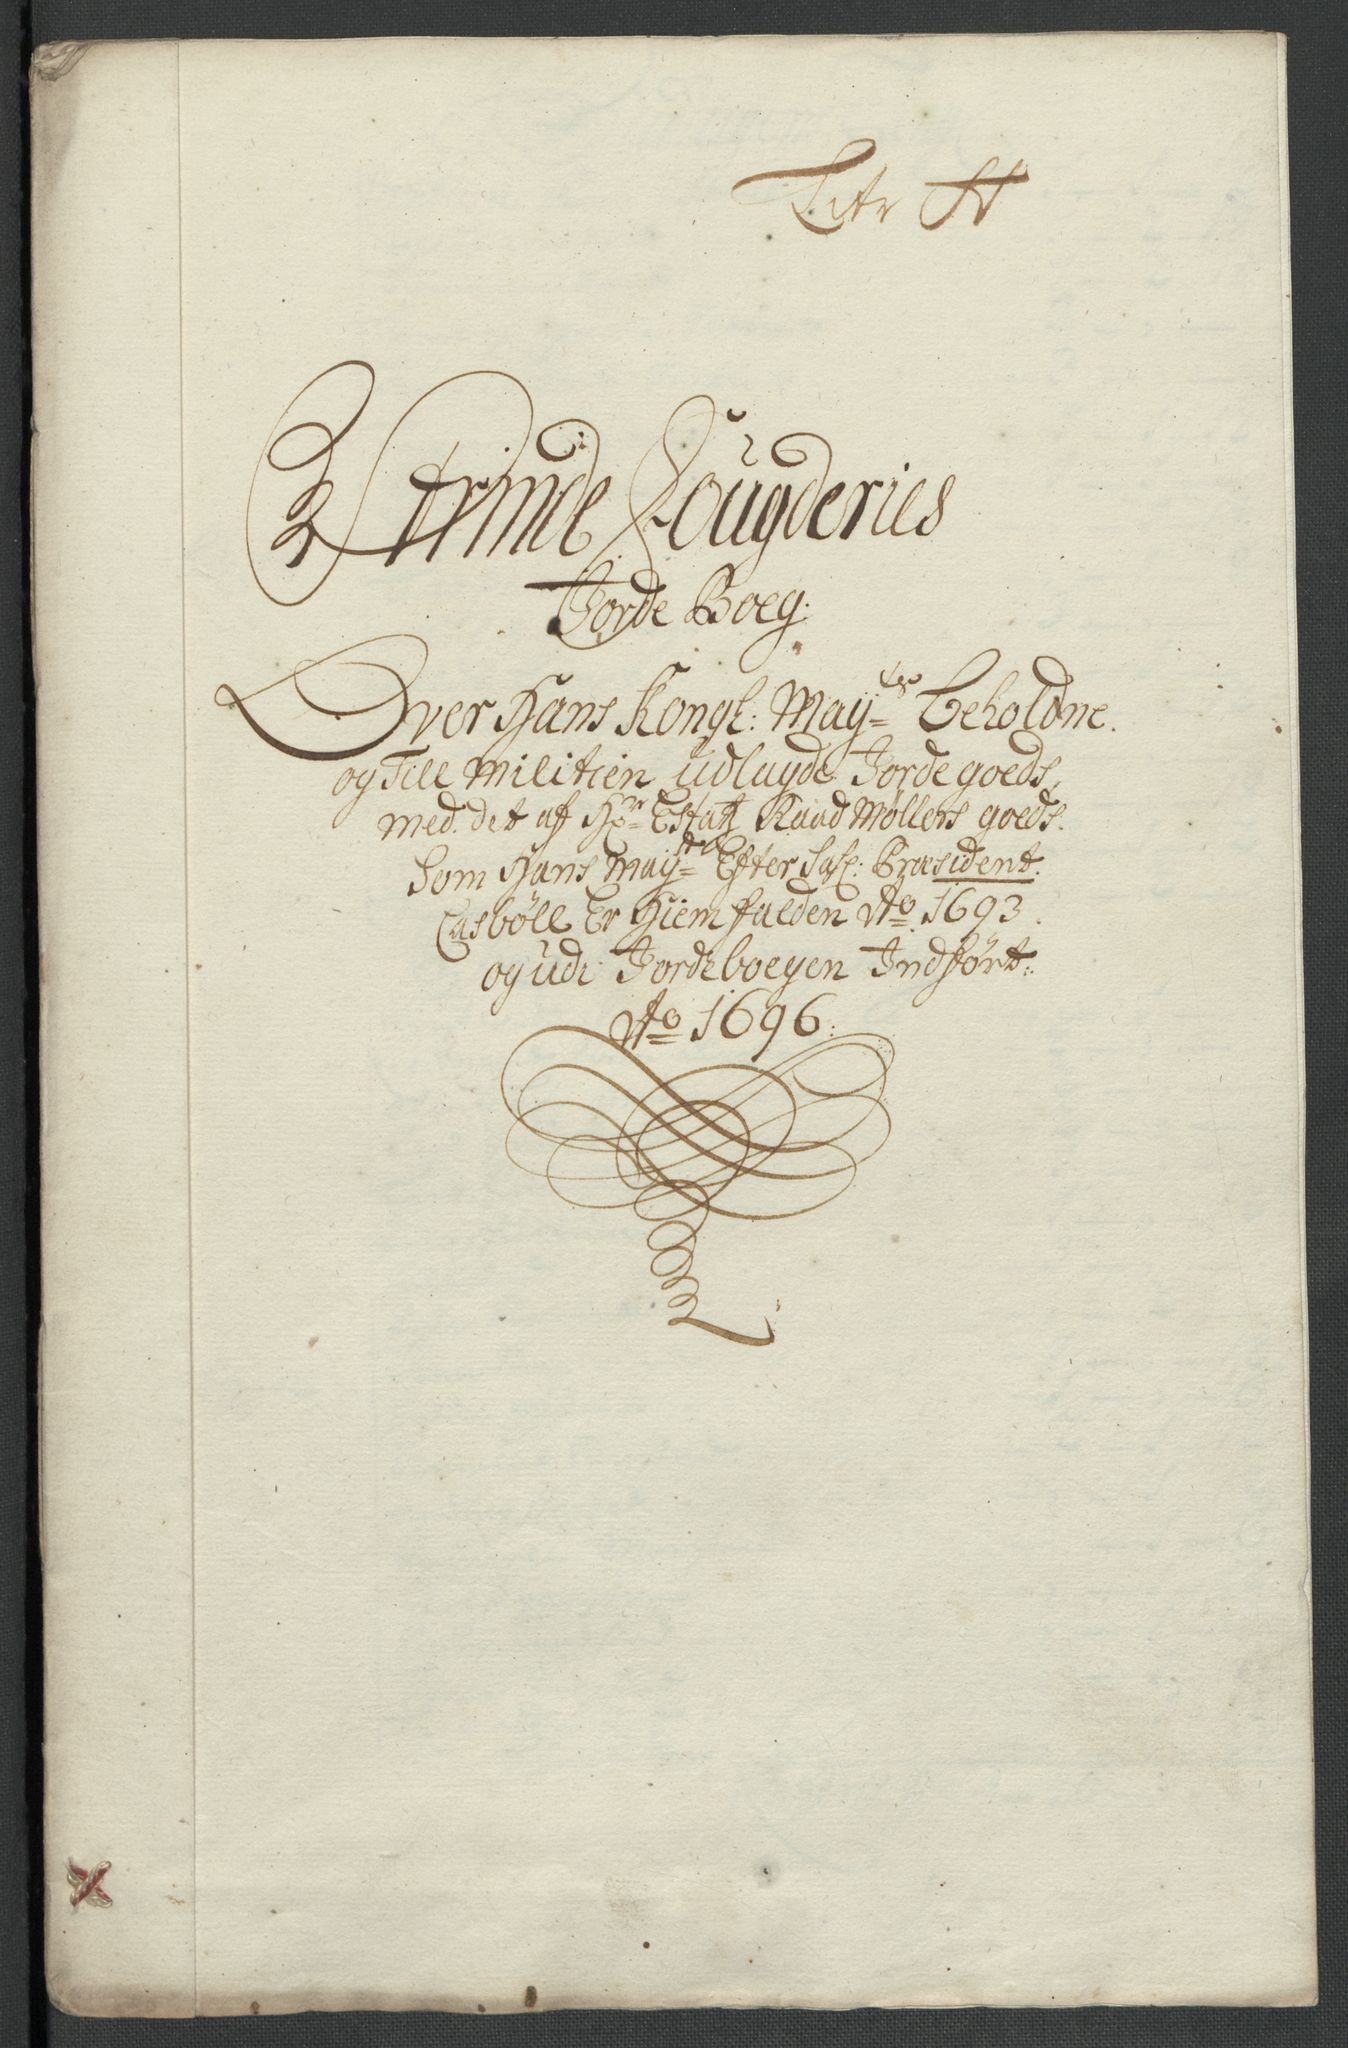 Litr A
Strinde Fougderies
Jorde Boeg.
Over Hans Kongl: May=tes Beholdne
og Till Militien udlagde Jorde goeds,
med det af Hr= Estatz Raad Møllers goeds.
Som Hans May=tt Efter Sal: Præsident.
Casböll Er Hiemfalden Ao 1693.
og udi Jordeboegen Indført:
Ao 1696.